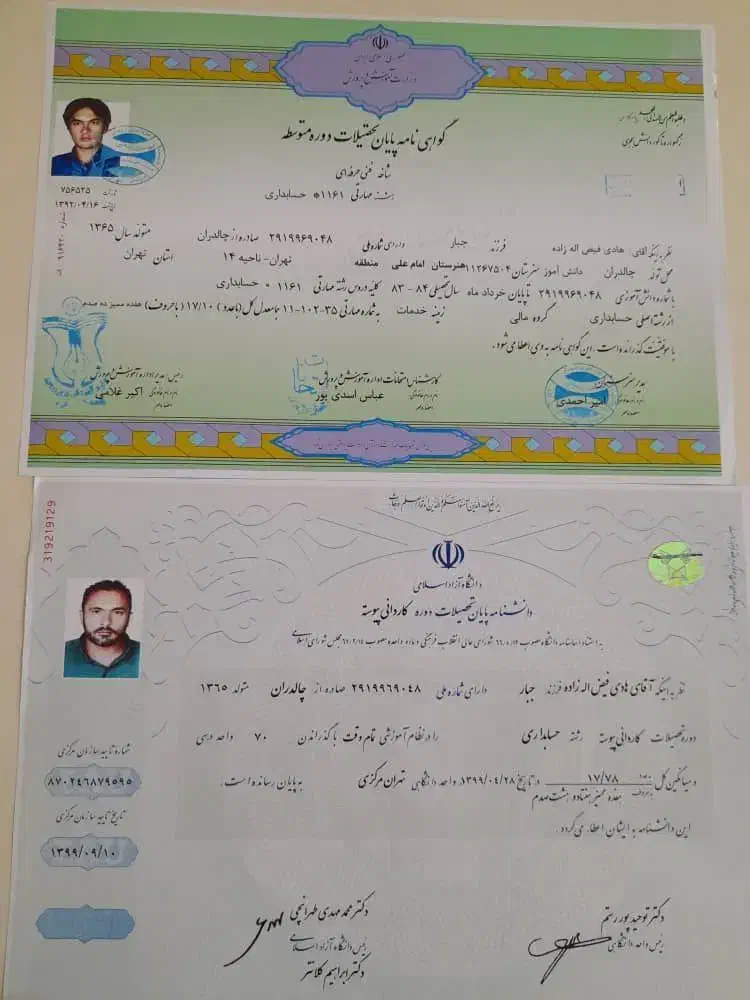 جمهوری اسلامی ایران
وزارت آموزش و پرورش
گواهی نامه پایان تحصیلات دوره متوسطه
شاخه فنی حرفه‌ای
مهارتی ۱۱۶۱* حسابداری
۷۵۶۵۲۵
۱۳۹۲/۰۴/۱۶
نظر به اینکه آقای: هادی فیض اله زاده فرزند جبار دارای شماره ملی ۲۹۱۹۹۶۹۰۴۸ صادره از چالدران متولد سال ۱۳۶۵
محل تولد چالدران دانش آموز هنرستان ۱۱۲۶۷۵۰۴ هنرستان امام علی منطقه تهران- ناحیه ۱۴ استان تهران
با شماره دانش آموزی ۲۹۱۹۹۶۹۰۴۸ تا پایان خرداد ماه سال تحصیلی ۸۴-۸۳ کلیه دروس رشته مهارتی ۱۱۶۱ * حسابداری
از رشته اصلی حسابداری گروه مالی زمینه خدمات به شماره مهارتی ۳۵-۱۰۲-۱۱ با معدل کل (با عدد) ۱۷/۱۰ (با حروف) هفده ممیز ده صدم
با موفقیت گذرانده است، این گواهی نامه به وی اعطا می شود.
مدیر هنرستان
نام و نام خانوادگی امیر احمدی
امضاء و مهر
کارشناس امتحانات اداره آموزش و پرورش
نام و نام خانوادگی عباس اسدی پور
امضاء و مهر
رئیس / مدیر اداره آموزش و پرورش
نام و نام خانوادگی اکبر غلامی
امضاء و مهر
319219129
دانشگاه آزاد اسلامی
دانشنامه پایان تحصیلات دوره کاردانی پیوسته
نظر به اینکه آقای هادی فیض اله زاده فرزند جبار دارای شماره ملی ۲۹۱۹۹۶۹۰۴۸ صادره از چالدران متولد ۱۳۶۵
دوره تحصیلات کاردانی پیوسته رشته حسابداری را در نظام آموزشی تمام وقت با گذراندن ۷۰ واحد درسی
و میانگین کل به عدد ۱۷/۷۸ به حروف هفده ممیز هفتاد و هشت صدم در تاریخ ۱۳۹۹/۰۴/۲۸ در واحد دانشگاهی تهران مرکزی به پایان رسانده است.
این دانشنامه به ایشان اعطا می گردد.
شماره تایید سازمان مرکزی
۸۷۰۲۴۶۸۷۹۵۹۵
تاریخ تایید سازمان مرکزی
۱۳۹۹/۰۹/۱۰
دکتر توحید پور رستم
رئیس واحد دانشگاهی
دکتر محمد مهدی طهرانچی
رئیس دانشگاه آزاد اسلامی
دکتر ابراهیم کلانتر